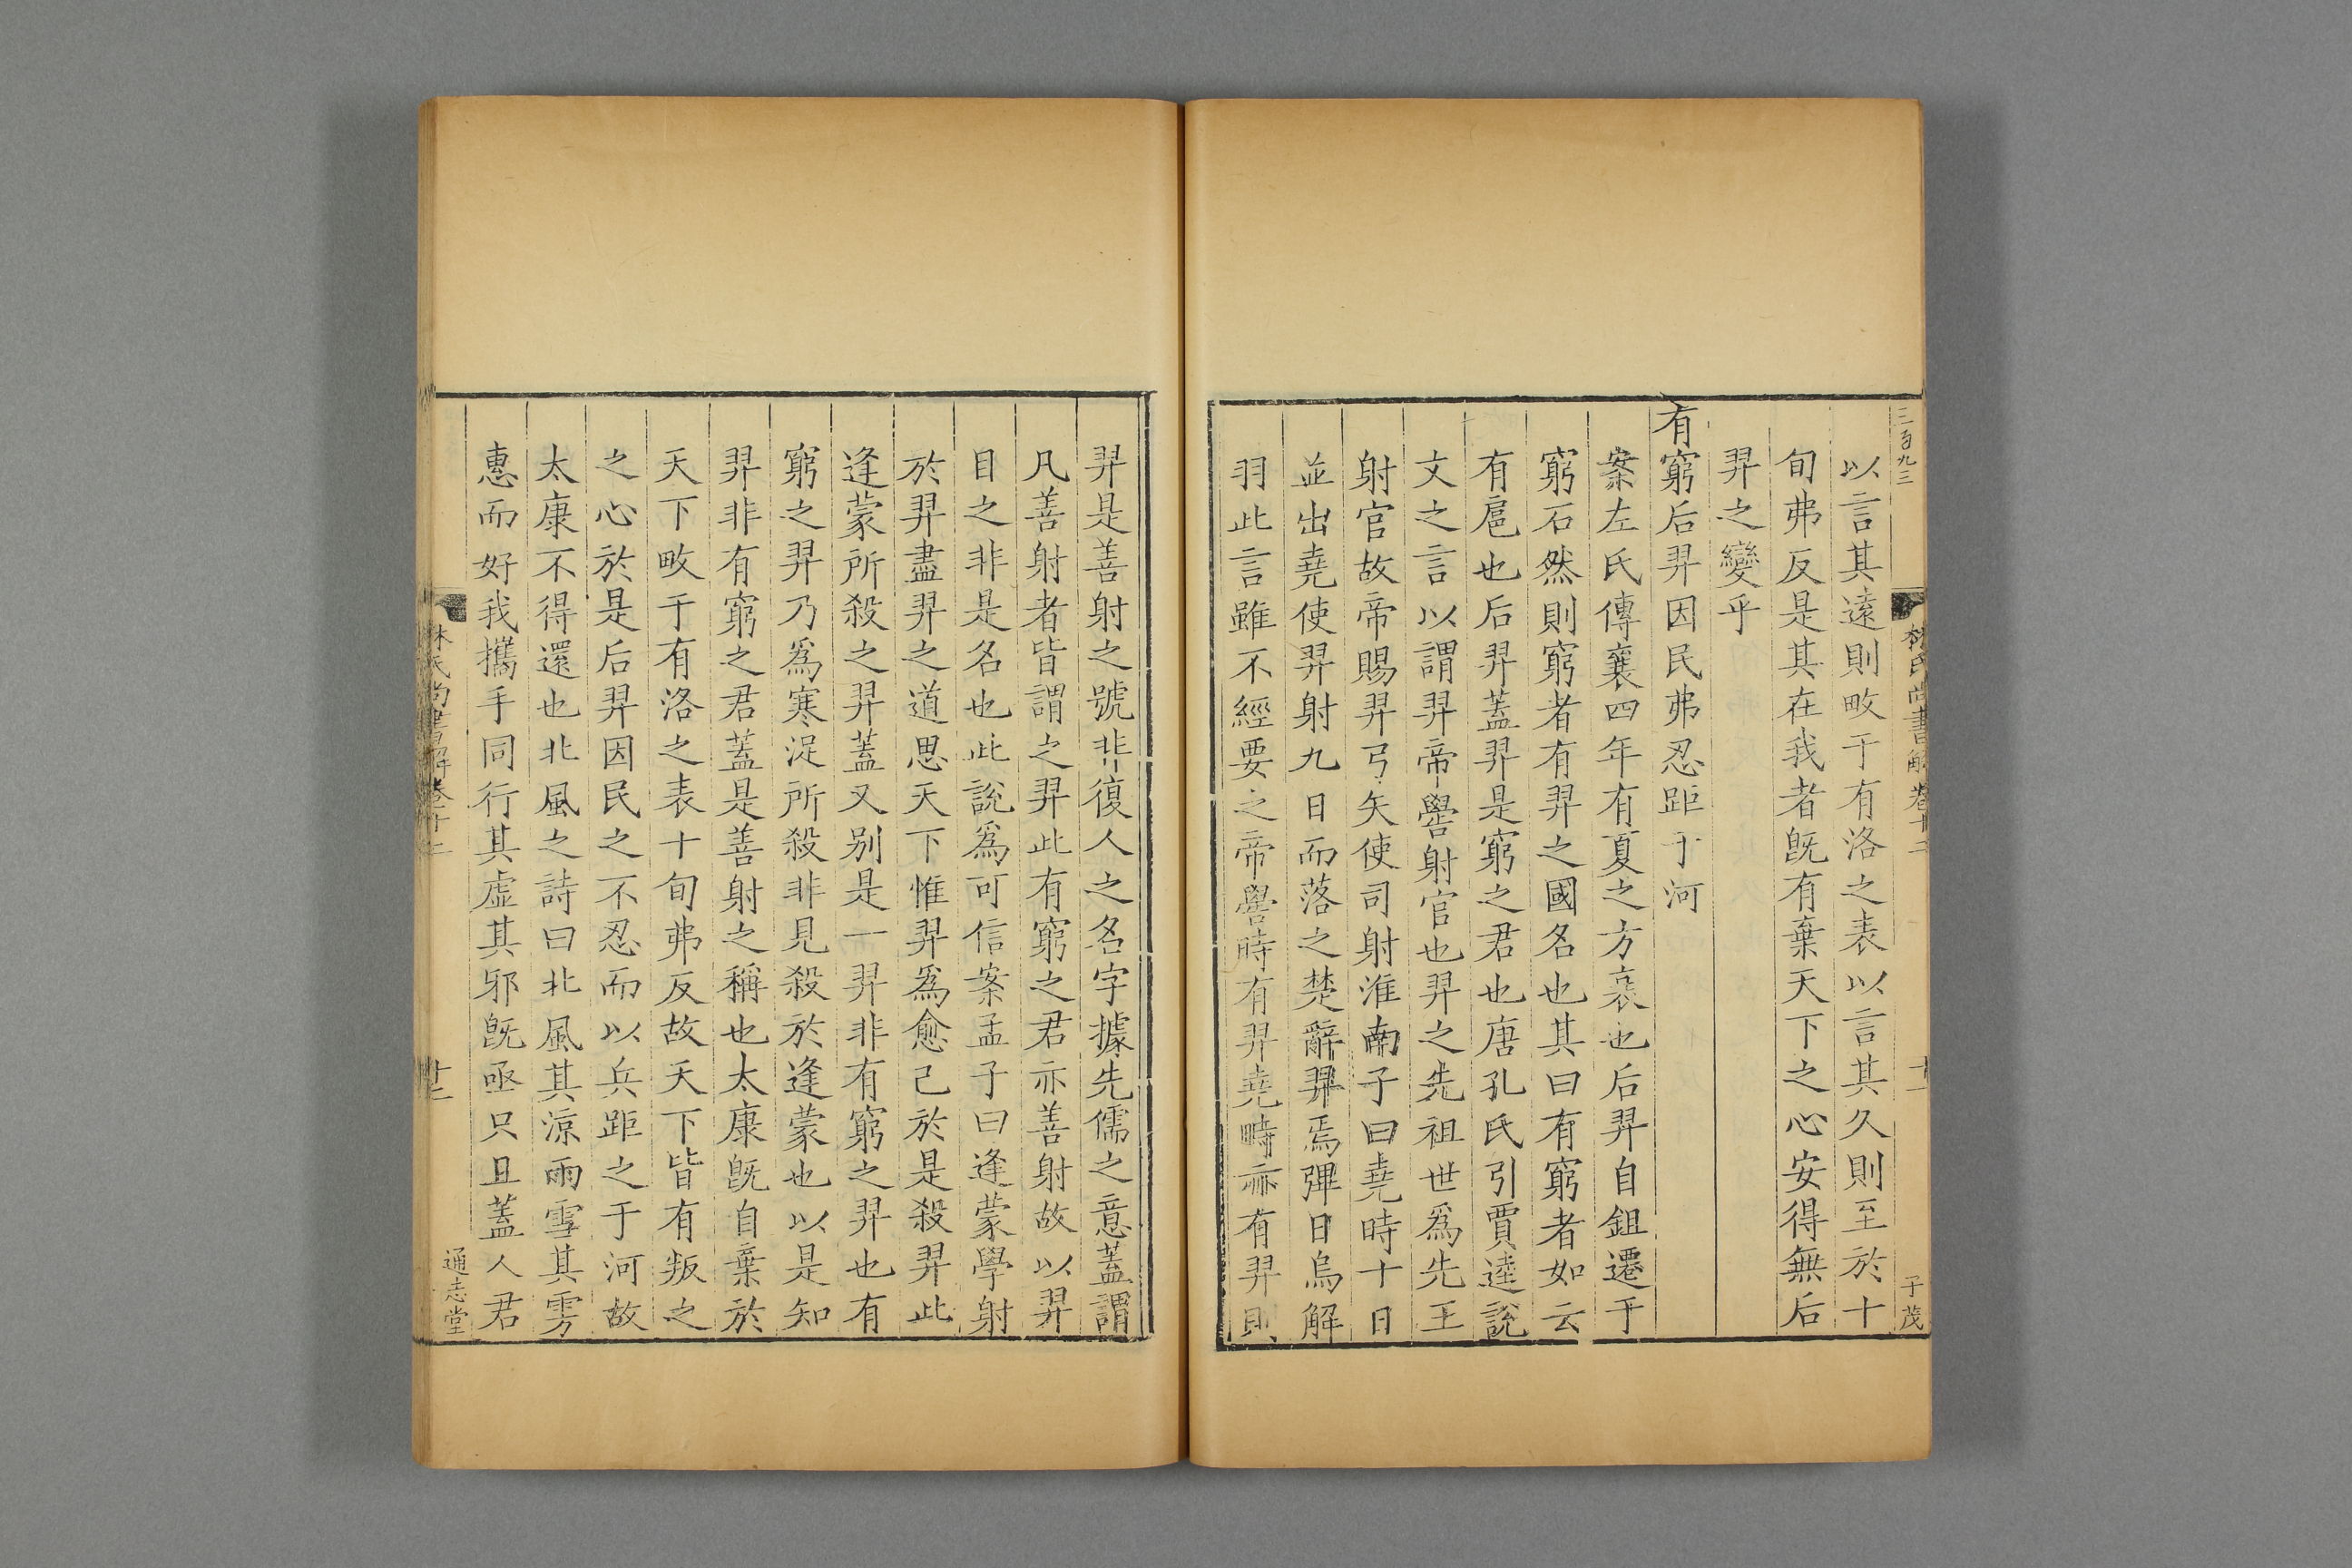 三百九三
林氏尚書解卷十二
十一
子茂
以言其遠則畋于有洛之表以言其久則至於十
旬弗反是其在我者旣有棄天下之心安得無后
羿之變乎
有窮后羿因民弗忍距于河
案左氏傳襄四年有夏之方衰也后羿自鉏遷于
窮石然則窮者有羿之國名也其曰有窮者如云
有扈也后羿蓋羿是窮之君也唐孔氏引賈逵說
文之言以謂羿帝嚳射官也羿之先祖世爲先王
射官故帝賜羿弓矢使司射淮南子曰堯時十日
並出堯使羿射九日而落之楚辭羿焉彈日烏解
羽此言雖不經要之帝嚳時有羿堯時亦有羿則
羿是善射之號非復人之名字據先儒之意蓋謂
凡善射者皆謂之羿此有窮之君亦善射故以羿
目之非是名也此說爲可信案孟子曰逢蒙學射
於羿盡羿之道思天下惟羿爲愈己於是殺羿此
逢蒙所殺之羿蓋又别是一羿非有窮之羿也有
窮之羿乃爲寒浞所殺非見殺於逢蒙也以是知
羿非有窮之君蓋是善射之稱也太康旣自棄於
天下畋于有洛之表十旬弗反故天下皆有叛之
之心於是后羿因民之不忍而以兵距之于河故
太康不得還也北風之詩曰北風其涼雨雪其雱
惠而好我攜手同行其虛其邪旣亟只且蓋人君
林氏尚書解卷十二
十二
通志堂